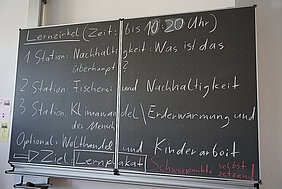 Lernzirkel (Zeit: bis 10:20 Uhr)
1 Station: Nachhaltigkeit: Was ist das
überhaupt?
2 Station: Fischerei und Nachhaltigkeit
3 Station Klimawandel \ Erderwärmung und
der Mensch
Optional: Welthandel und Kinderarbeit
→ Ziel: Lernplakat
Schwerpunkte selbst
setzen!